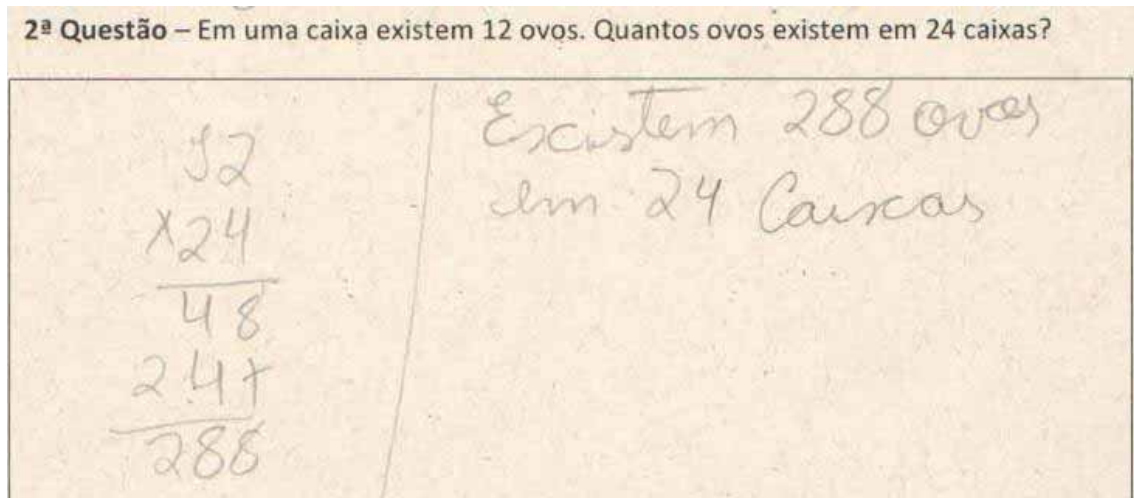 2ª Questão – Em uma caixa existem 12 ovos. Quantos ovos existem em 24 caixas?
12
x24
48
24+
288
Existem 288 ovos
em 24 Caixas